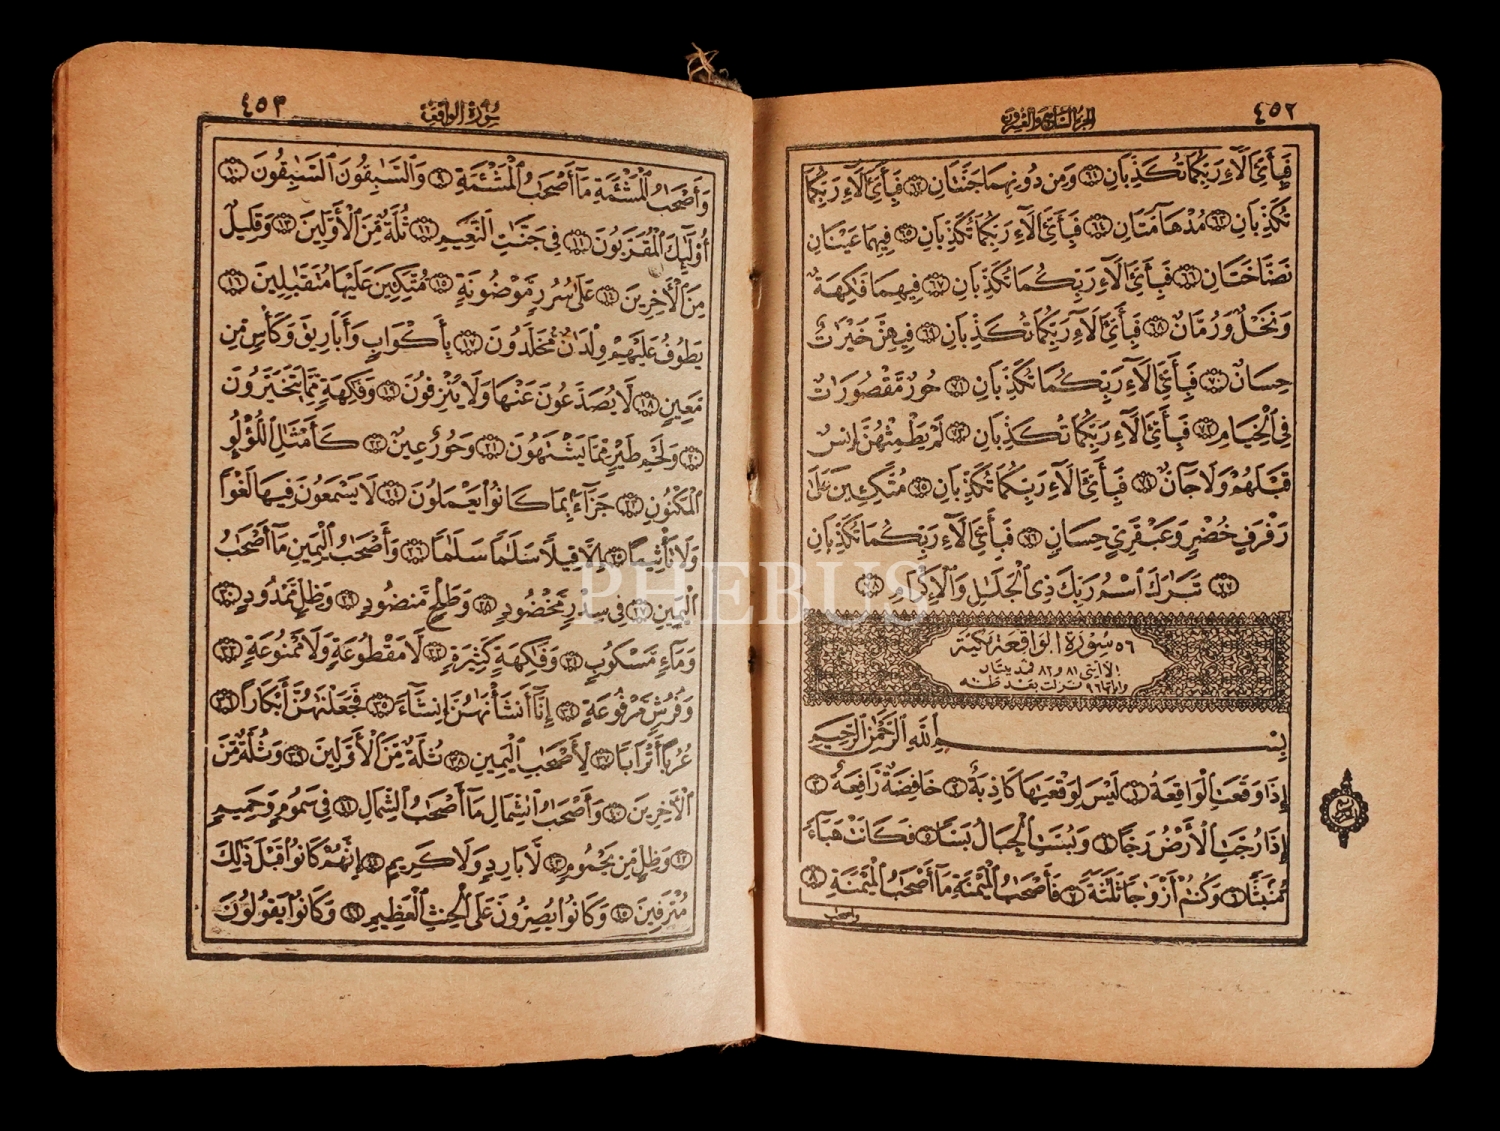 ٤٥٢
الجزء السابع والعشرون
فَبِأَيِّ آلَاءِ رَبِّكُمَا تُكَذِّبَانِ ٦١ وَمِن دُونِهِمَا جَنَّتَانِ ٦٢ فَبِأَيِّ آلَاءِ رَبِّكُمَا
تُكَذِّبَانِ ٦٣ مُدْهَامَّتَانِ ٦٤ فَبِأَيِّ آلَاءِ رَبِّكُمَا تُكَذِّبَانِ ٦٥ فِيهِمَا عَيْنَانِ
نَضَّاخَتَانِ ٦٦ فَبِأَيِّ آلَاءِ رَبِّكُمَا تُكَذِّبَانِ ٦٧ فِيهِمَا فَاكِهَةٌ
وَنَخْلٌ وَرُمَّانٌ ٦٨ فَبِأَيِّ آلَاءِ رَبِّكُمَا تُكَذِّبَانِ ٦٩ فِيهِنَّ خَيْرَاتٌ
حِسَانٌ ٧٠ فَبِأَيِّ آلَاءِ رَبِّكُمَا تُكَذِّبَانِ ٧١ حُورٌ مَّقْصُورَاتٌ
فِي الْخِيَامِ ٧٢ فَبِأَيِّ آلَاءِ رَبِّكُمَا تُكَذِّبَانِ ٧٣ لَمْ يَطْمِثْهُنَّ إِنسٌ
قَبْلَهُمْ وَلَا جَانٌّ ٧٤ فَبِأَيِّ آلَاءِ رَبِّكُمَا تُكَذِّبَانِ ٧٥ مُتَّكِئِينَ عَلَىٰ
رَفْرَفٍ خُضْرٍ وَعَبْقَرِيٍّ حِسَانٍ ٧٦ فَبِأَيِّ آلَاءِ رَبِّكُمَا تُكَذِّبَانِ
٧٧ تَبَارَكَ اسْمُ رَبِّكَ ذِي الْجَلَالِ وَالْإِكْرَامِ ٧٨
٥٦ سورة الواقعة مكية
الا آيتي ٨١ و ٨٢ فمدنيتان
وآياتها ٩٦ نزلت بعد طه
بِسْمِ اللَّهِ الرَّحْمَٰنِ الرَّحِيمِ
إِذَا وَقَعَتِ الْوَاقِعَةُ ١ لَيْسَ لِوَقْعَتِهَا كَاذِبَةٌ ٢ خَافِضَةٌ رَّافِعَةٌ ٣
إِذَا رُجَّتِ الْأَرْضُ رَجًّا ٤ وَبُسَّتِ الْجِبَالُ بَسًّا ٥ فَكَانَتْ هَبَاءً
مُّنبَثًّا ٦ وَكُنتُمْ أَزْوَاجًا ثَلَاثَةً ٧ فَأَصْحَابُ الْمَيْمَنَةِ مَا أَصْحَابُ الْمَيْمَنَةِ ٨
واصحاب
سورة الواقعة
٤٥٣
وَأَصْحَابُ الْمَشْأَمَةِ مَا أَصْحَابُ الْمَشْأَمَةِ ٩ وَالسَّابِقُونَ السَّابِقُونَ ١٠
أُولَٰئِكَ الْمُقَرَّبُونَ ١١ فِي جَنَّاتِ النَّعِيمِ ١٢ ثُلَّةٌ مِّنَ الْأَوَّلِينَ ١٣ وَقَلِيلٌ
مِّنَ الْآخِرِينَ ١٤ عَلَىٰ سُرُرٍ مَّوْضُونَةٍ ١٥ مُّتَّكِئِينَ عَلَيْهَا مُتَقَابِلِينَ ١٦
يَطُوفُ عَلَيْهِمْ وِلْدَانٌ مُّخَلَّدُونَ ١٧ بِأَكْوَابٍ وَأَبَارِيقَ وَكَأْسٍ مِّن
مَّعِينٍ ١٨ لَّا يُصَدَّعُونَ عَنْهَا وَلَا يُنزِفُونَ ١٩ وَفَاكِهَةٍ مِّمَّا يَتَخَيَّرُونَ
٢٠ وَلَحْمِ طَيْرٍ مِّمَّا يَشْتَهُونَ ٢١ وَحُورٌ عِينٌ ٢٢ كَأَمْثَالِ اللُّؤْلُؤِ
الْمَكْنُونِ ٢٣ جَزَاءً بِمَا كَانُوا يَعْمَلُونَ ٢٤ لَا يَسْمَعُونَ فِيهَا لَغْوًا
وَلَا تَأْثِيمًا ٢٥ إِلَّا قِيلًا سَلَامًا سَلَامًا ٢٦ وَأَصْحَابُ الْيَمِينِ مَا أَصْحَابُ
الْيَمِينِ ٢٧ فِي سِدْرٍ مَّخْضُودٍ ٢٨ وَطَلْحٍ مَّنضُودٍ ٢٩ وَظِلٍّ مَّمْدُودٍ ٣٠
وَمَاءٍ مَّسْكُوبٍ ٣١ وَفَاكِهَةٍ كَثِيرَةٍ ٣٢ لَّا مَقْطُوعَةٍ وَلَا مَمْنُوعَةٍ ٣٣
وَفُرُشٍ مَّرْفُوعَةٍ ٣٤ إِنَّا أَنشَأْنَاهُنَّ إِنشَاءً ٣٥ فَجَعَلْنَاهُنَّ أَبْكَارًا ٣٦
عُرُبًا أَتْرَابًا ٣٧ لِّأَصْحَابِ الْيَمِينِ ٣٨ ثُلَّةٌ مِّنَ الْأَوَّلِينَ ٣٩ وَثُلَّةٌ مِّنَ
الْآخِرِينَ ٤٠ وَأَصْحَابُ الشِّمَالِ مَا أَصْحَابُ الشِّمَالِ ٤١ فِي سَمُومٍ وَحَمِيمٍ
٤٢ وَظِلٍّ مِّن يَحْمُومٍ ٤٣ لَّا بَارِدٍ وَلَا كَرِيمٍ ٤٤ إِنَّهُمْ كَانُوا قَبْلَ ذَٰلِكَ
مُتْرَفِينَ ٤٥ وَكَانُوا يُصِرُّونَ عَلَى الْحِنثِ الْعَظِيمِ ٤٦ وَكَانُوا يَقُولُونَ
PHEBUS